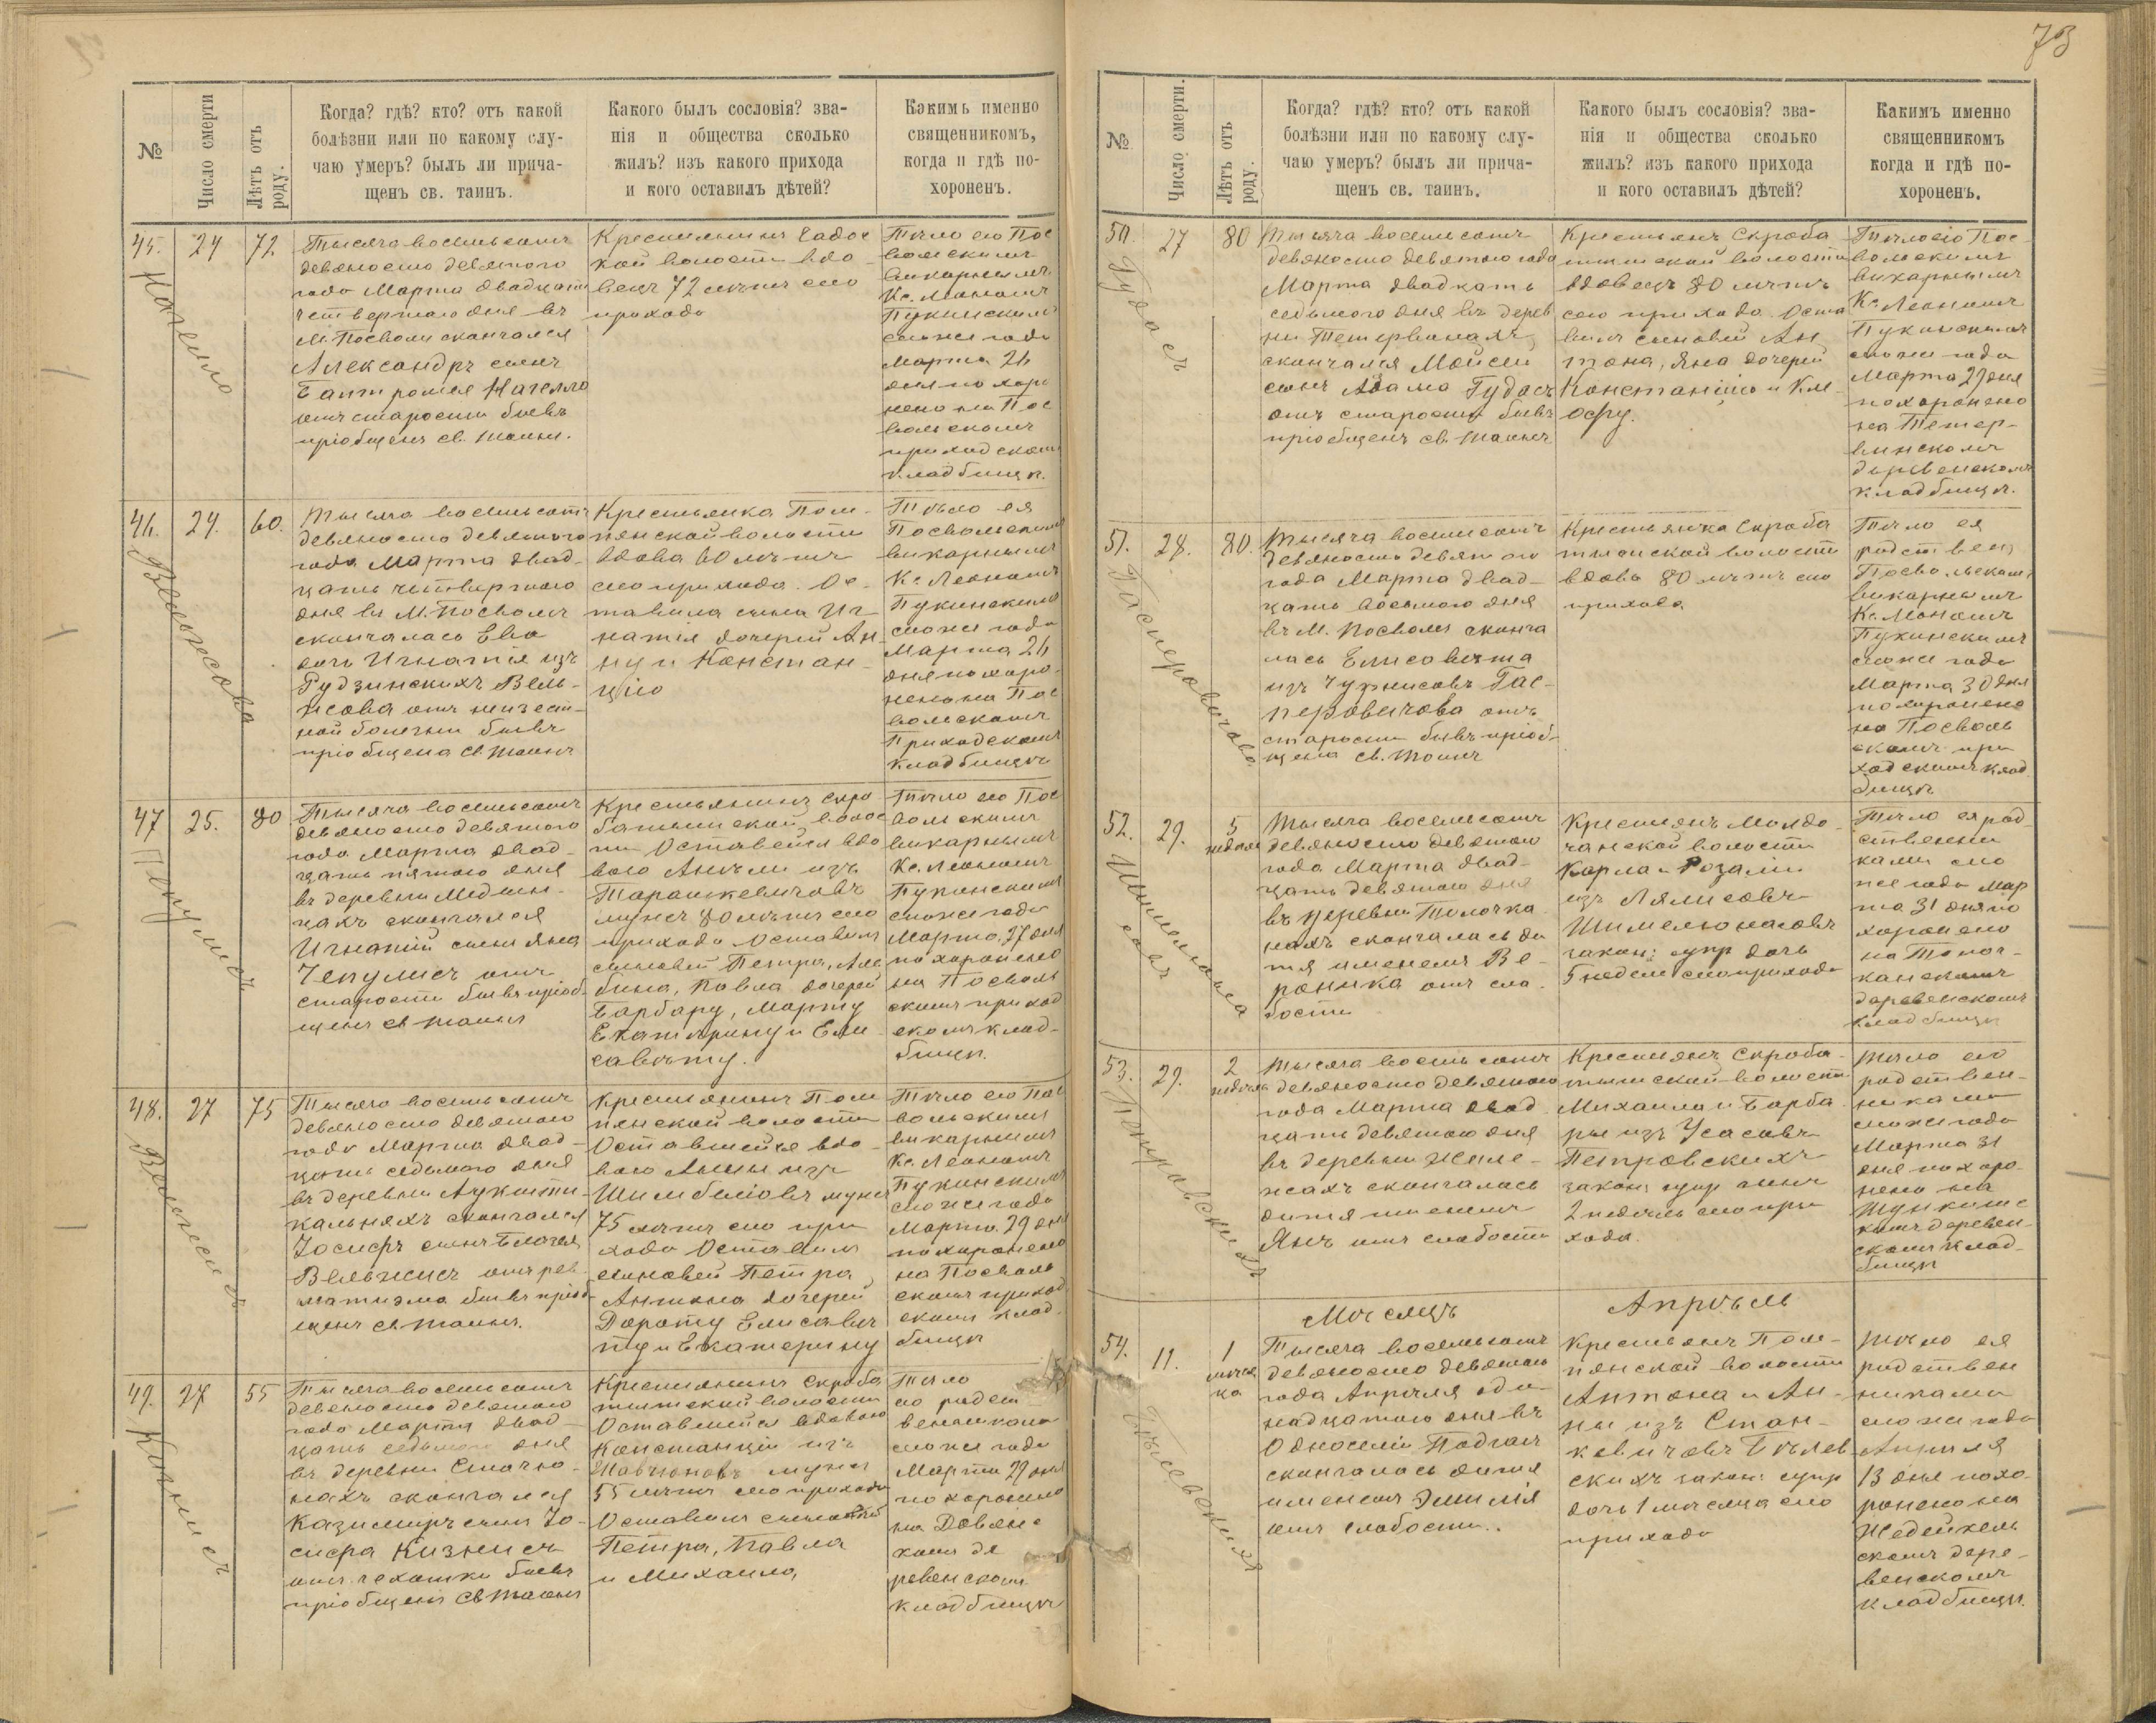 73
№
Число смерти
Лѣтъ отъ роду.
Когда? гдѣ? кто? отъ какой
болѣзни или по какому слу-
чаю умеръ? былъ ли прича-
щенъ св. таинъ.
Какого былъ сословія? зва-
нія и общества сколько
жилъ? изъ какого прихода
и кого оставилъ дѣтей?
Какимъ именно
священникомъ,
когда и гдѣ по-
хороненъ.
45.
24
72
Нагелло
Тысяча восемьсотъ
девяносто девятого
года Марта двадцать
четвертаго дня въ
М. Посволи скончался
Александръ сынъ
Бартромея Нагелло
отъ старости бывъ
пріобщенъ св. таинъ.
вецъ 72 лѣтъ сего
прихода
Тѣло его Пос
вольскимъ
викарнымъ
Кс. Леономъ
Пукинскимъ
сего же года
Марта 26
дня похоро
нено на Пос
вольскомъ
приходскомъ
кладбищѣ.
46.
24.
60.
Вельжисова
Тысяча восемьсотъ
девяносто девятого
года Марта двад-
цать четвертаго
дня въ М. Посволѣ
скончалась Ева
дочь Игнатія изъ
Рудзинскихъ Вель-
жисова отъ неизвѣст-
ной болезни бывъ
пріобщена св. таинъ
Крестьянка Пом-
пянской волости
вдова 60 лѣтъ
сего прихода. Ос-
тавила сына Иг-
натія дочерей Ан-
ну и Констан-
цію
Тѣло ея
Посвольскимъ
викарнымъ
Кс. Леономъ
Пукинскимъ
сего же года
Марта 26
дня похоро-
нено на Пос
вольскомъ
Приходскомъ
кладбищѣ
47
25.
80
Чепулисъ
Тысяча восемьсотъ
девяносто девятого
года Марта двад-
цать пятого дня
въ деревни
скончался
Игнатій сынъ Яна
Чепулисъ отъ
старости бывъ пріоб-
щенъ св. таинъ
Крестьянинъ Скро
батышской волос
ти Оставшейся вдо
вою Анели изъ
Тарашкевичовъ
мужъ 80 лѣтъ сего
прихода Оставилъ
сыновей Петра, Аль
бина, Павла дочерей
Барбару, Марту
Екатерину и Ели
савѣту.
Тѣло его Пос
вольскимъ
викарнымъ
Кс. Леономъ
Пукинскимъ
сего же года
Марта 27 дня
похоронено
на Посволь
скомъ приход
скомъ клад-
бищѣ.
48.
27
75
Вельжисъ
Тысяча восемьсотъ
девяносто девятого
года Марта двад-
цать седьмого дня
въ деревни
скончался
Іосифъ сынъ Блажея
Вельжисъ отъ рев-
матизма бывъ пріоб-
щенъ св. таинъ.
Крестьянинъ Пом
пянской волости
Оставшейся вдо-
вою Анны изъ
Шимбелювъ мужъ
75 лѣтъ сего при
хода Оставилъ
сыновей Петра,
Антона дочерей
Дороту Елисавѣ
ту и Екатерину
Тѣло его Пос
вольскимъ
викарнымъ
Кс. Леономъ
Пукинскимъ
сего же года
Марта 29 дня
похоронено
на Посволь
скомъ приход
скомъ клад-
бищѣ
49.
27
55
Кизнисъ
Тысяча восемьсотъ
девяносто девятого
года Марта двад-
цать седьмого дня
въ деревни
скончался
Казимиръ сынъ Іо-
сифа Кизнисъ
отъ чахотки бывъ
пріобщенъ св. таинъ
Крестьянинъ Скроба
тышской волости
Оставшейся вдовою
Констанціи изъ
мужъ
55 лѣтъ сего прихода
Оставилъ сыновей
Петра, Павла
и Михаила,
Тѣло
его родст
венниками
сего же года
Марта 29 дня
похоронено
на Довянс
комъ де
ревенскомъ
кладбищѣ
№
Число смерти.
Лѣтъ отъ роду.
Когда? гдѣ? кто? отъ какой
болѣзни или по какому слу-
чаю умеръ? былъ ли прича-
щенъ св. таинъ.
Какого былъ сословія? зва-
нія и общества сколько
жилъ? изъ какого прихода
и кого оставилъ дѣтей?
Какимъ именно
священникомъ
когда и гдѣ по-
хороненъ.
50.
27
80
Гудасъ
Тысяча восемьсотъ
девяносто девятого года
Марта двадцать
седьмого дня въ дерев
ни Тетервинахъ
скончался Мойсей
сынъ Адама Гудасъ
отъ старости бывъ
пріобщенъ св. таинъ
Крестьянъ Скроба
тышской волости
вдовецъ 80 лѣтъ
сего прихода. Оста
вилъ сыновей Ан
тона, Яна дочерей
Констанцію и Кле-
офу.
Тѣло его Пос-
вольскимъ
викарнымъ
Кс. Леономъ
Пукинскимъ
сего же года
Марта 29 дня
похоронено
на Тетер-
винскомъ
деревенскомъ
кладбищѣ.
51.
28.
80.
Гасперовичова
Тысяча восемьсотъ
девяносто девятого
года Марта двад-
цать восьмого дня
въ М. Посволи сконча
лась Елисавѣта
изъ Гас-
перовичова отъ
старости бывъ пріоб-
щена св. таинъ
Крестьянка Скроба
тышской волости
вдова 80 лѣтъ сего
прихода
Тѣло ея
родствен
Посвольскимъ
викарнымъ
Кс. Леономъ
Пукинскимъ
сего же года
Марта 30 дня
похоронено
на Посволь
скомъ при
ходскомъ клад
бищѣ
52.
29.
5
недѣль
Тысяча восемьсотъ
девяносто девятого
года Марта двад-
цать девятого дня
въ деревни Толочка
нахъ скончалась ди
тя именемъ Ве-
роника отъ сла-
бости
Карла и Розаліи
изъ Лялисовъ
Шимелюнасовъ
закон: супр дочь
5 недель сего прихода
Тѣло ея род-
ственни
ками сего
же года Мар
та 31 дня по
хоронено
на Толоч-
канскомъ
деревенскомъ
кладбищѣ
53.
29.
2
недѣли
Петровскихъ
Тысяча восемьсотъ
девяносто девятого
года Марта двад
цать девятого дня
въ деревни
скончалось
дитя именемъ
Янъ отъ слабости
Крестьянъ Скроба-
тышской волости
Михаила и Барба
ры изъ Усасовъ
Петровскихъ
закон: супр сынъ
2 недѣль сего при
хода.
Тѣло его
родствен-
никами
сего же года
Марта 31
дня похоро-
нено на
деревен-
скомъ клад-
бищѣ
Мѣсяцъ Апрѣль
54.
11.
1
мѣсяц
Тысяча восемьсотъ
девяносто девятого
года Апрѣля оди-
надцатого дня въ
Односелiи
скончалась дитя
именемъ Эмилія
отъ слабости.
Крестьянъ Пом-
пянской волости
Антона и Ан-
ны изъ Стан-
кевичовъ Бѣляев
скихъ закон: супр
дочь 1 мѣсяца сего
прихода
Тѣло ея
родствен
никами
сего же года
Апрѣля
13 дня похо-
ронено на
скомъ дере-
венскомъ
кладбищѣ.